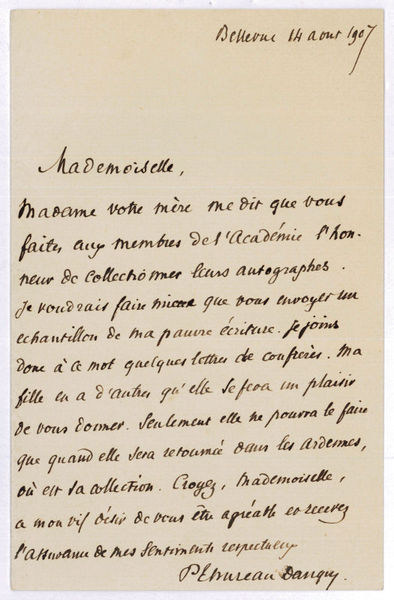 Bellevue 14 aout 1907
Mademoiselle,
Madame votre mère me dit que vous
faites aux membres de l'Académie l'hon-
neur de collectionner leurs autographes.
Je voudrais faire mieux que vous envoyer un
echantillon de ma pauvre écriture. Je joins
donc à ce mot quelques lettres de confrères. Ma
fille en a d'autres qu'elle se fera un plaisir
de vous donner. Seulement elle ne pourra le faire
que quand elle sera retournée dans les ardennes,
où est sa collection. Croyez, Mademoiselle,
a mon vif désir de vous être agréable et recevez
l'assurance de mes sentiments respectueux
P Thureau Dangin.